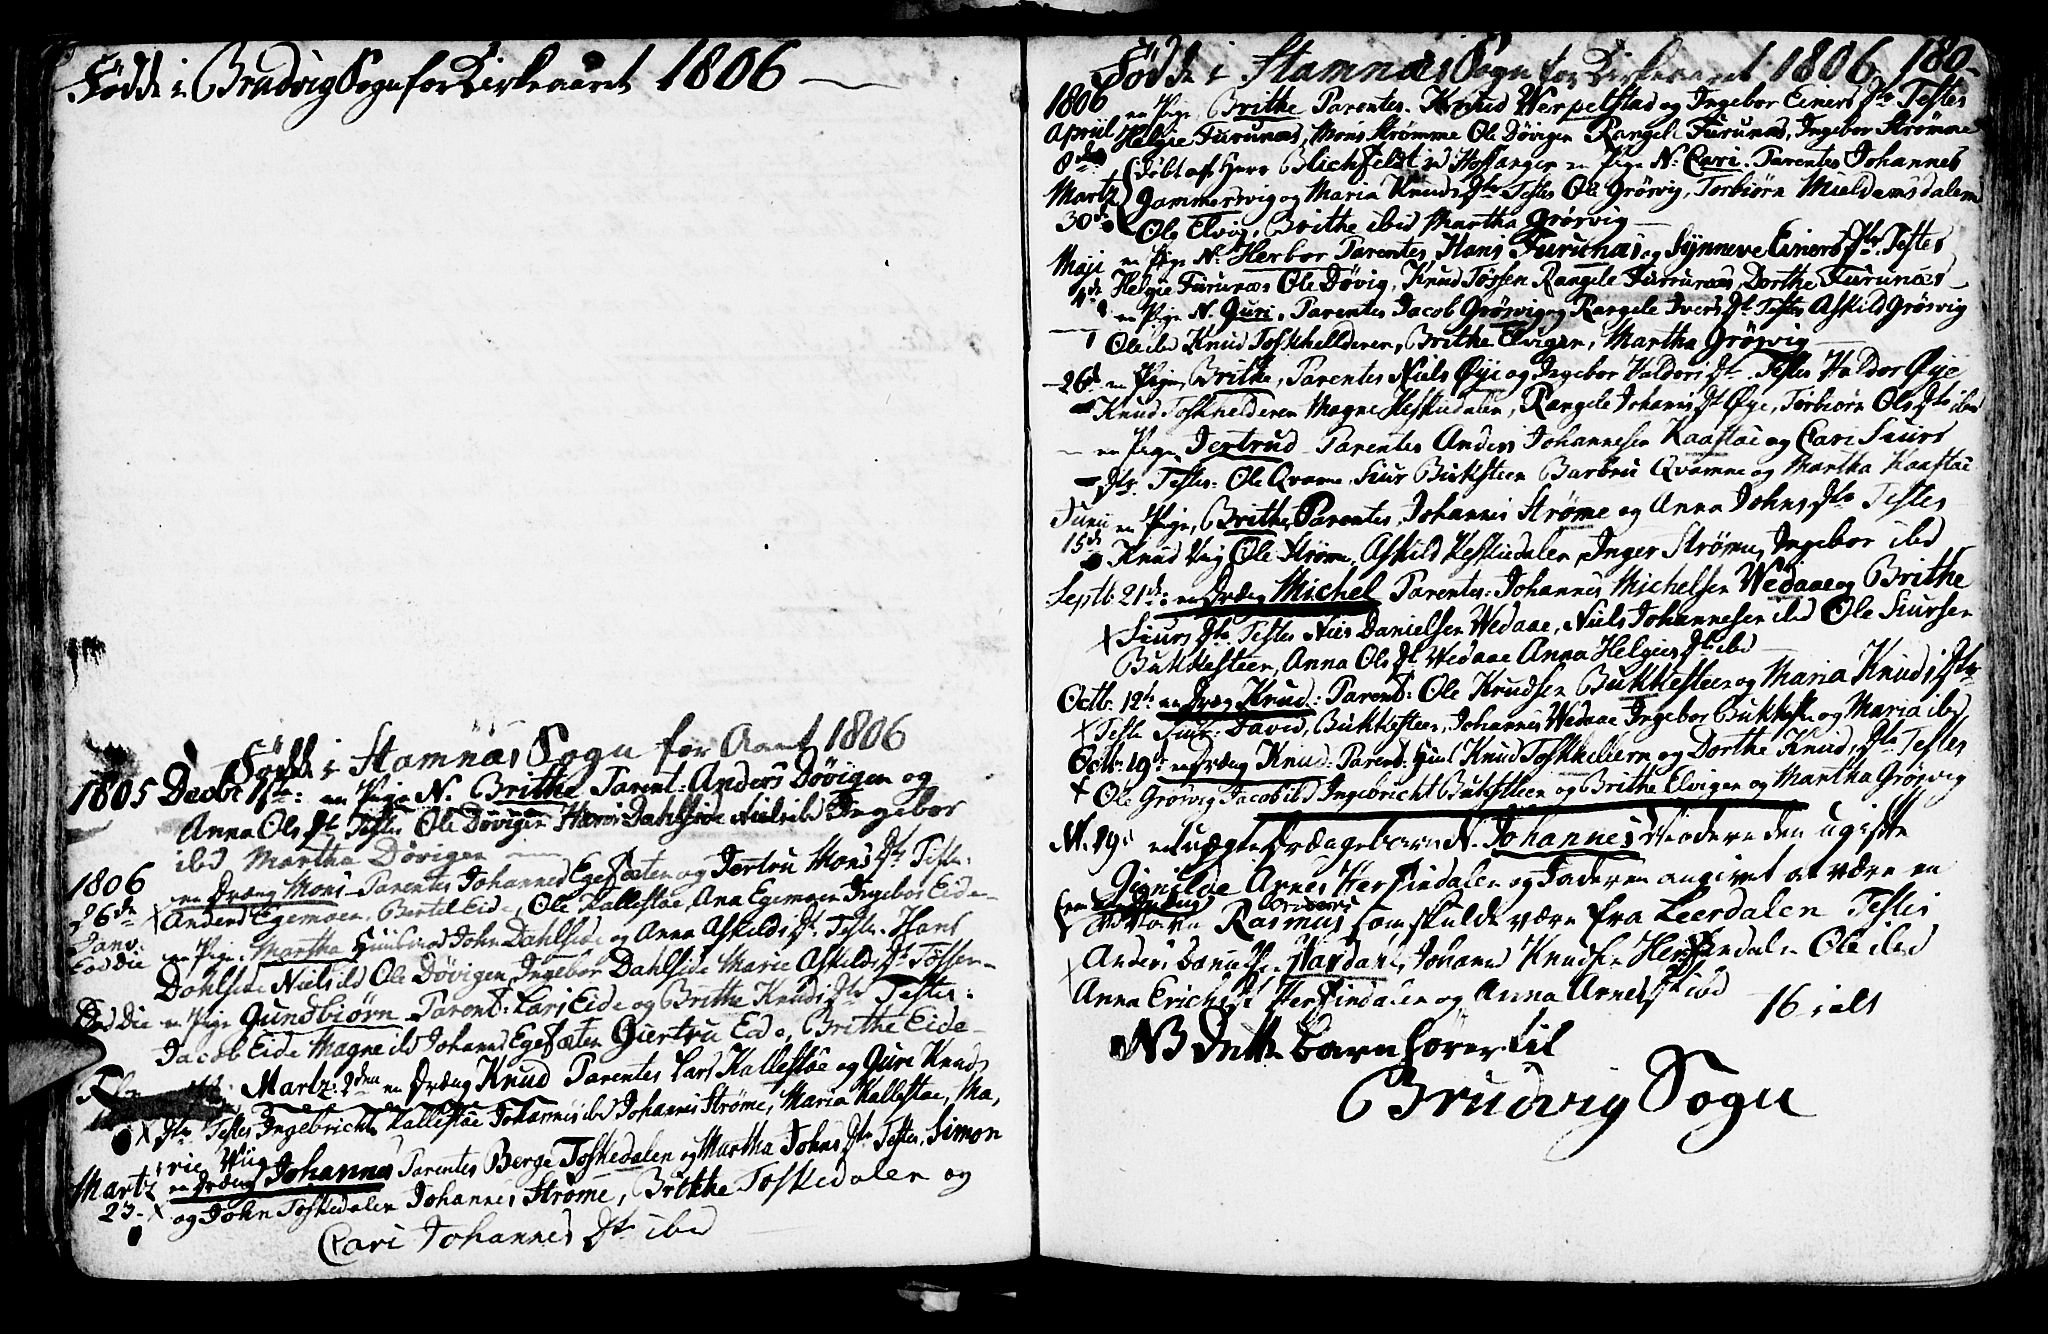 Fødde i Brudvig Sogn for Kirkeaaret 1806
Fødde i Stamnæs Sogn for Aaret 1806
1805 Decbr 1ste: en Pige N. Brithe Parent: Anders Døvigen og
Anna Ols Dtr Testes Ole Døvigen Hans Dahlside Niels ibd Ingebor
ibd Martha Døvigen
1806 en Dræng Mons Parentes Johannes Egefæten og Jertru Mons Dtr Teste:
26de Anders Egemoen, Bertel Eide, Ole Kallestae, Ana Egemoen Ingebor Eide
Janv: en Pige Martha John Dahlside og Anna Askilds Dtr Teste. Hans
Eod die Dahlside Niels ibd Ole Døvigen, Ingebor Dahlside Marie Askilds Dtr Tøssen
Eod die en Pige Gundbiørn Parent: Lars Eide og Brithe Knuds Dtr Testes:
Jacob Eide Magne ibd Johans Egefæten Giertru Eide, Brithe Eide
Martz: 2den en Dræng Knud Parentes Lars Kallestae og Guri Knuds
Dtr Testes Ingebricht Kallestae Johannes ibd Johannes Strøme, Maria Kallestae, Ma,
rie Vug
Martz en Dræng Johannes Parentes Berge Toskedalen og Martha Johns Dtr Testes. Simon
23 og John Toskedalen Johannes Strøme, Brithe Toskedalen og
Cari Johannes Dtr ibd
Fødde i Stamnæs Sogn for Kirkeaaret 1806 180
1806 en Pige, Brithe Parentes. Knud Werpelstad og Ingebor Einers Dtr Testes
Apriil Helgie Furunæs, Mons Strømme Ole Døvigen Rangele Furunæs, Ingebor Strømme
8de Døbt af Herr Blichfeldt ved Hosanger en Pige N: Cari. Parentes Johannes
Martz Gammersvig og Maria Knuds Dtr Testes Ole Grøsvig, Torbiørn Mieldamsdalen
30de Ole Elvig, Brithe ibid Martha Grøsvig
Maji en Pige N. Herbor Parentes, Hans Furunæs og Synneve Einers Dtr. Testes
4de Helgie Furunæs Ole Døvig, Knud Tøssen Rangele Furrunæs, Dorthe Furunæs
en Pige N. Guri. Parentes Jacob Grøsvig og Rangele Ivers Dtr Testes Askild Grøsvig
Ole ibd Knud Toskhellderen, Brithe Elvigen, Martha Grøsvig
26de en Pige, Brithe, Parentes Niels Øye og Ingebor Haldors Dtr. Testes Haldor Øye
Knud Toskhelderen Magne Heskiedalen, Rangele Johanis Dtr Øye, Torbiørn Ols Dtr ibd
en Pige Jertrud Parentes Anders Johannesen Kaastae og Cari Siurs
Dtr Testes: Ole Qvame, Siur Bukksteen Barbru Qvamne og Martha Kaastae
Junii en Pige, Brithe Parentes, Johannes Strøme og Anna Johns Dtr Testes
15de Knud Vig Ole Strøm, Askild Heskiedalen, Inger Strøme, Ingebor ibd
Septb: 21de: en Dræng Michel Parentes: Johannes Michelsen Wedaae og Brithe
Siurs Dtr Testes Niels Danielsen Wedaae, Niels Johannesen ibd Ole Siursen
Bukkesteen, Anna Ols Dtr Wedaae Anna Helgies Dtr ibd
Octb: 12te en Dræng Knud: Parent: Ole Knudsen Bukkesteen og Maria Knuds Dtr
Teste Siur: David, Bukkesteen, Johannes Wedaae Ingebor Bukkeste og Maria ibd
Octb: 19de en Dræng Knud: Parent: Knud Toskhellern og Dorthe Knuds Dtr Testes
Ole Grøsvig Jacob ibd Ingebricht Bukksteen og Brithe Elvigen og Martha Grøsvig
N. 19: en uægte Drængebarn N. Johannes Moderen den ugifte
Gjønilde Arnes Herfindalen og Faderen angivet at være en
Rasmus som skulde være fra Leerdalen Testes
Anders Danielsen Hardahl, Johans Knudsen Herfindalen Ole ibd
Anna Erichs Dtr Herfindalen og Anna Arnes Dtr ibd
16 i alt
NB dette barn hører til
Brudvig Sogn